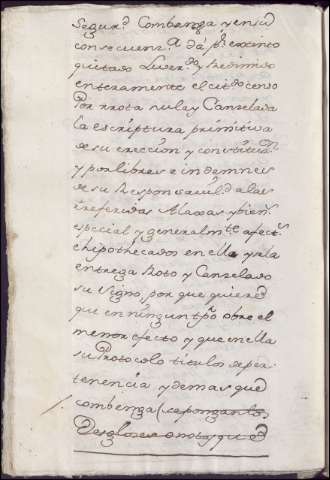 Segurᵈ Combenga y en su
consecuenzᵃ dá pʳ extincto
quitado Liverᵈᵒ y Redimido
enteramente el citᵈᵒ censo
Por rrota nula y Canzelada
la escriptura primitiva
de su ereccion y constituciᵒⁿ
y por libres e indemnes
de su Responsavilᵈ a las
referidas Alaxas y bienˢ
especial y generalmᵗᵉ afectˢ
e hipothecados en ella y la
entrega Roto y Canzelado
su signo, por que quiere
que en ningun tpᵒ obre el
menor efecto y que en ella
su Protocolo titulos de per
tenencia y demas que
combenga (se pongan las)
Desgloses o notas que